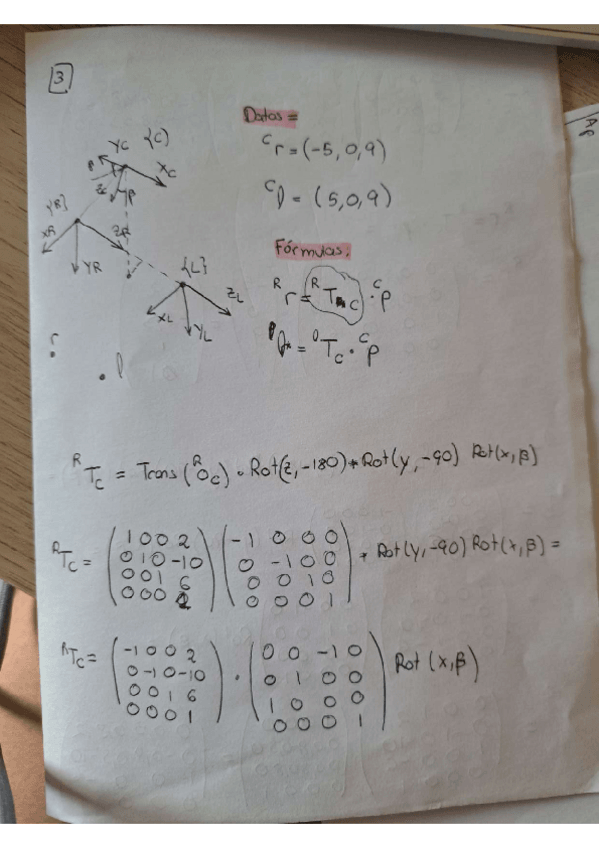 3
Datos =
ᶜr = (-5, 0, 9)
ᶜl = (5, 0, 9)
Fórmulas:
ᴿr = ᴿT C · ᶜp
= ⁰Tc · ᶜp
YC {C}
XC
β
β
{R}
XR
ZR
YR
{L}
ZL
XL
YL
r
l
ᴿTc = Trans(ᴿOc) · Rot(z, -180) * Rot(y, -90) Rot(x, β)
ᴿTc = (1 0 0 2 / 0 1 0 -10 / 0 0 1 6 / 0 0 0 1) (-1 0 0 0 / 0 -1 0 0 / 0 0 1 0 / 0 0 0 1) * Rot(y, -90) Rot(x, β) =
ᴿTc = (-1 0 0 2 / 0 -1 0 -10 / 0 0 1 6 / 0 0 0 1) · (0 0 -1 0 / 0 1 0 0 / 1 0 0 0 / 0 0 0 1) Rot(x, β)